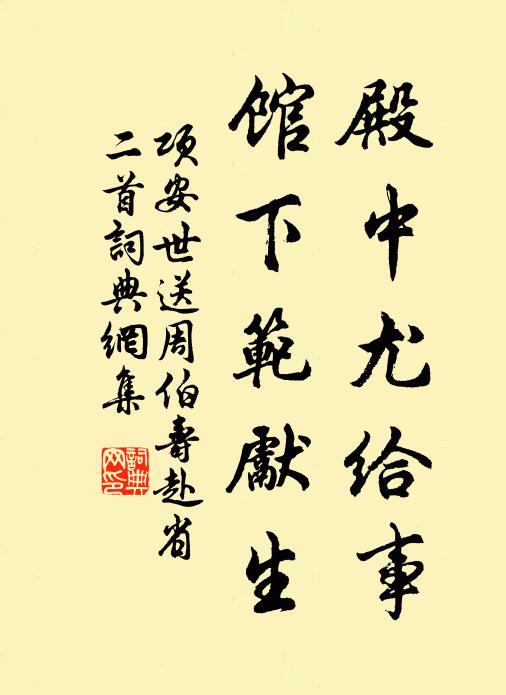 殿中尤给事
馆下範獻生
项安世送周伯壽赴省
二首詞典網集
詞典網印